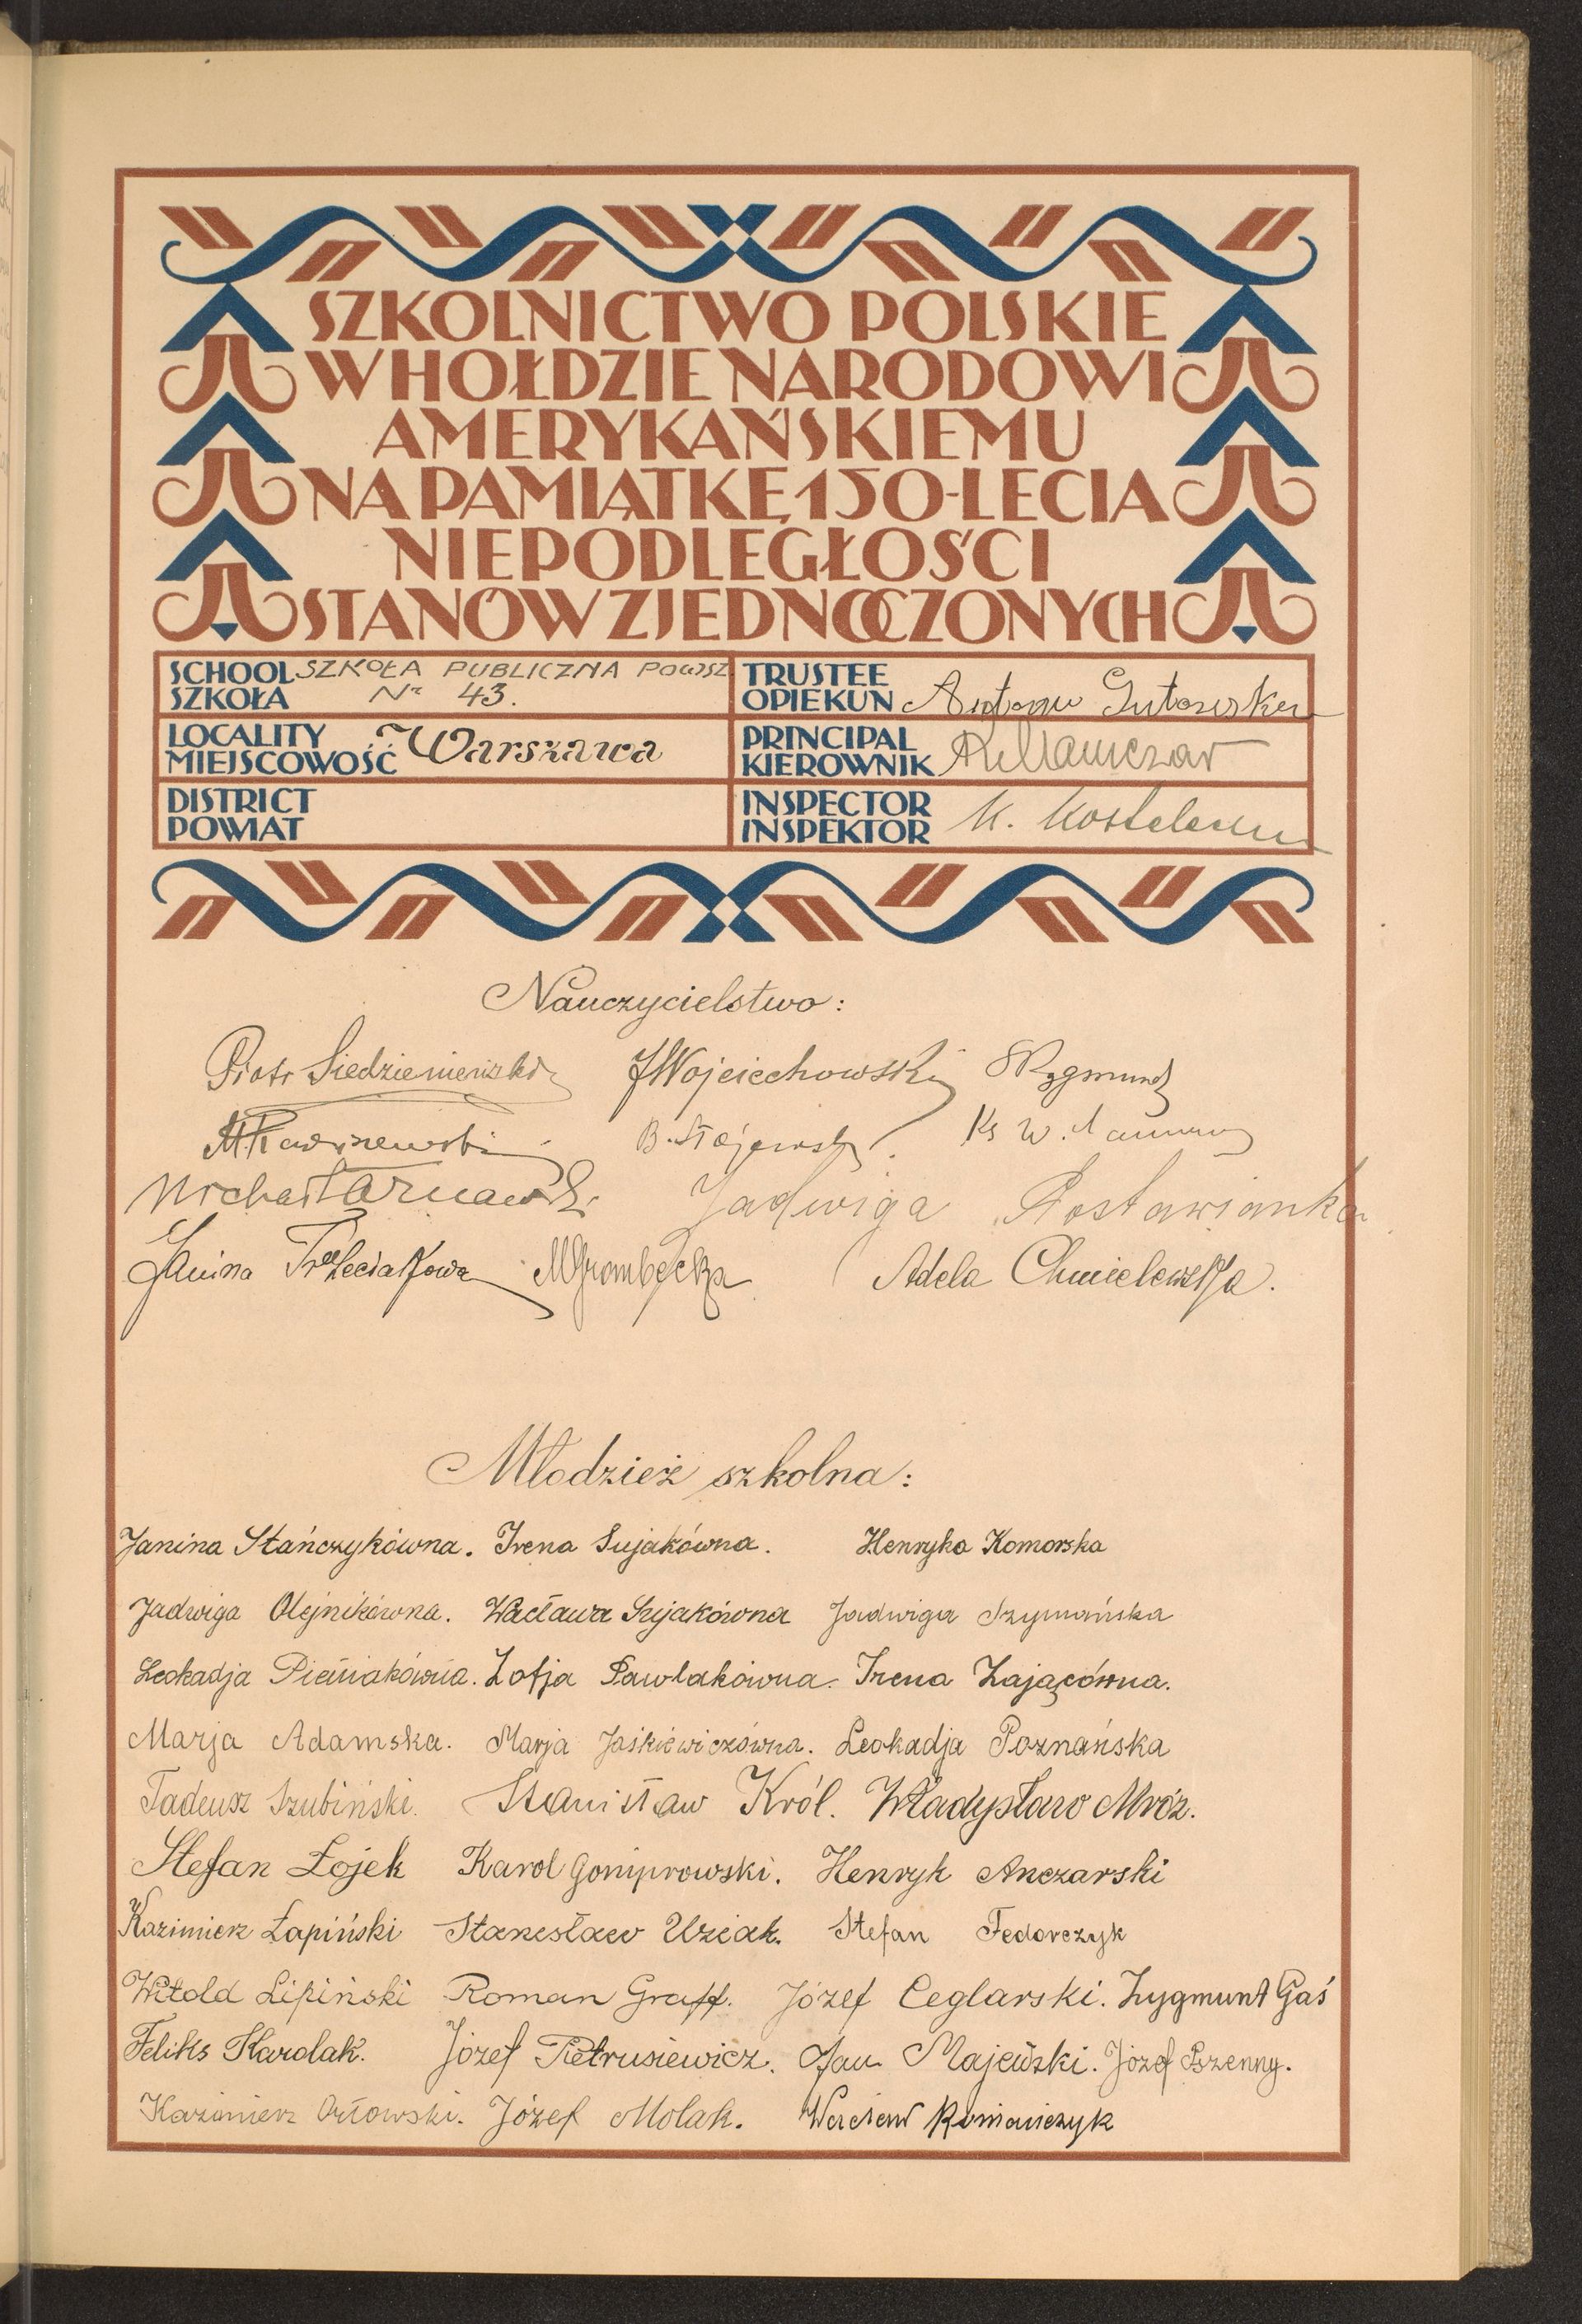 SZKOLNICTWO POLSKIE
W HOŁDZIE NARODOWI
AMERYKAŃSKIEMU
NA PAMIĄTKĘ 150-LECIA
NIEPODLEGŁOŚCI
STANÓW ZJEDNOCZONYCH
SCHOOL SZKOŁA PUBLICZNA POWSZ
SZKOŁA Nr 43.
TRUSTEE
OPIEKUN
LOCALITY
MIEJSCOWOŚĆ Warszawa
PRINCIPAL
KIEROWNIK
DISTRICT
POWIAT
INSPECTOR
INSPEKTOR K.
Nauczycielstwo:
Piotr JWojciechowski
B. Ks W.
Jadwiga
Janina Adela Chmielewska.
Młodzież szkolna:
Janina Stańczykówna. Irena Sujakówna. Henryka Komorska
Jadwiga Olejnikówna. Wacława Sujakówna Jadwiga Szymańska
Leokadja Pieńiakówna. Zofja Pawlakówna. Irena Zającówna.
Marja Adamska. Marja Jaśkiewiczówna. Leokadja Poznańska
Tadeusz Szubiński. Stanisław Król. Władysław Mróz.
Stefan Łojek Karol Henryk Anczarski
Kazimierz Łapiński Stanisław Uziak. Stefan Fedorczyk
Witold Lipiński Roman Graff. Józef Ceglarski. Zygmunt Gaś
Feliks Karolak. Józef Pietrusiewicz. Jan Majewski. Józef Pszenny.
Kazimierz Orłowski. Józef Molak. Wacław Romańczyk